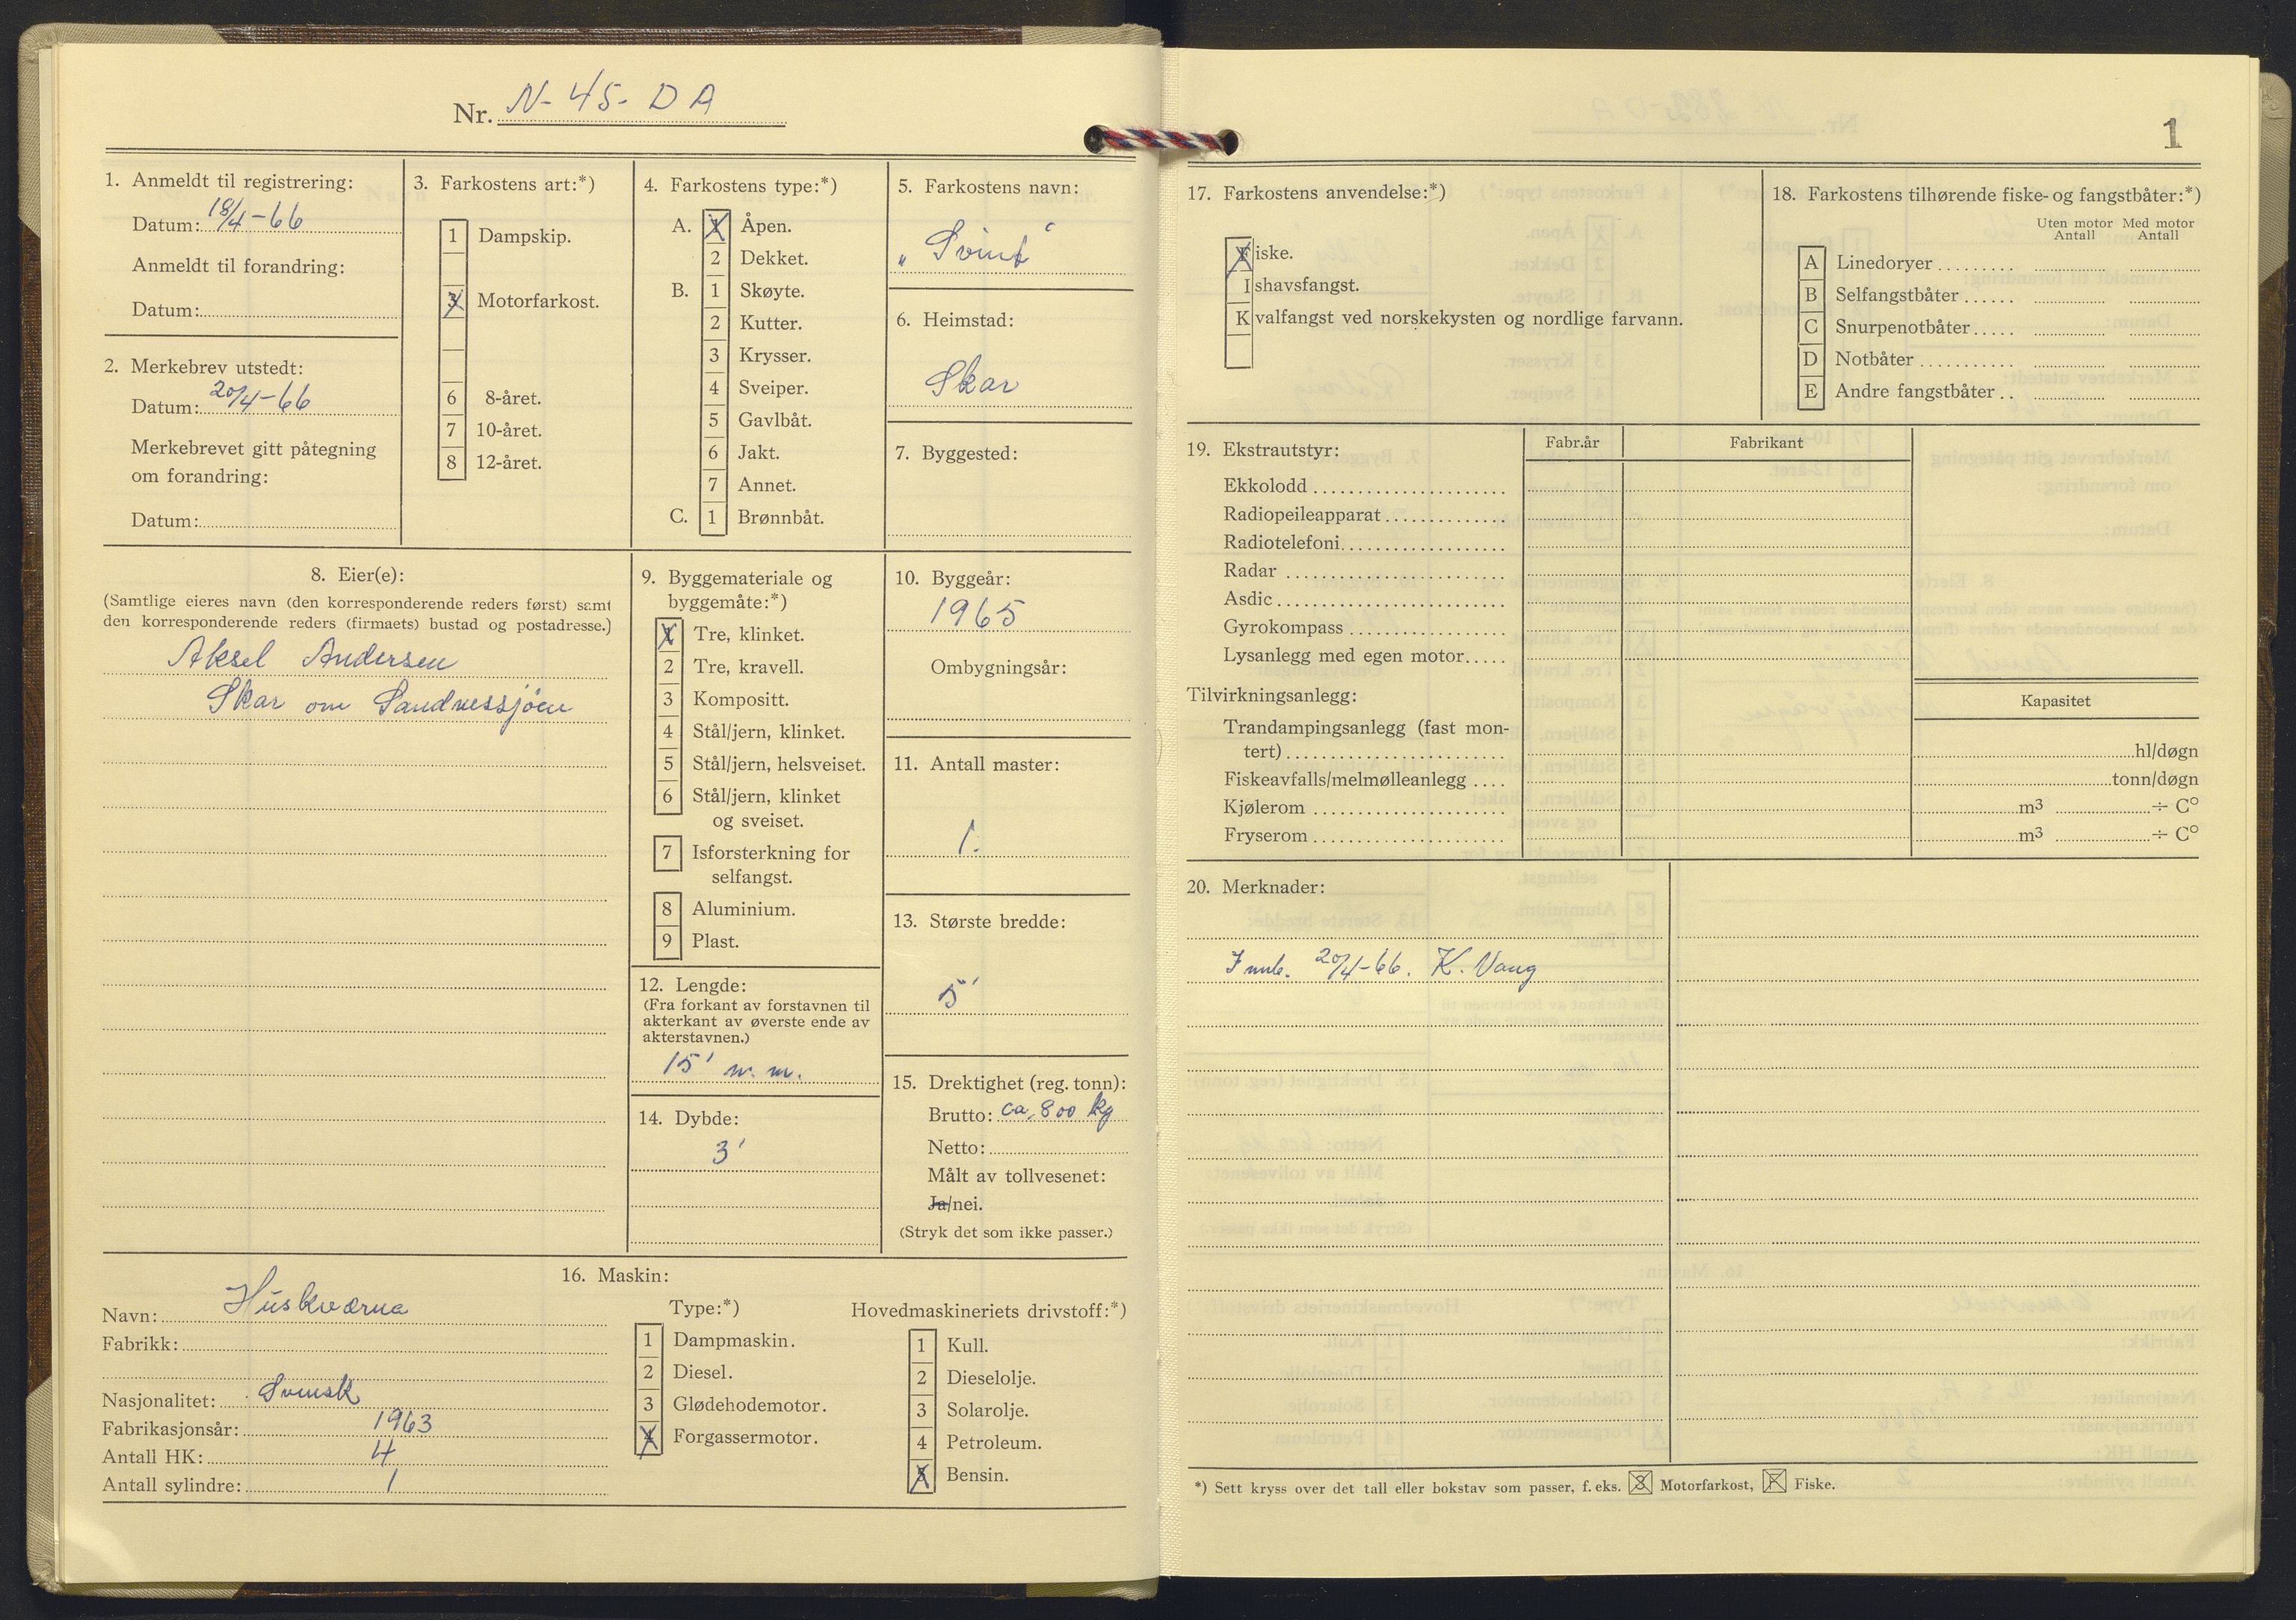 Nr. N-45-DA
1. Anmeldt til registrering:
Datum: 18/4-66
Anmeldt til forandring:
Datum:
2. Merkebrev utstedt:
Datum: 20/4-66
Merkebrevet gitt påtegning
om forandring:
Datum:
3. Farkostens art:*)
1 Dampskip.
3 Motorfarkost.
6 8-året.
7 10-året.
8 12-året.
4. Farkostens type:*)
A. 1 Åpen.
2 Dekket.
B. 1 Skøyte.
2 Kutter.
3 Krysser.
4 Sveiper.
5 Gavlbåt.
6 Jakt.
7 Annet.
C. 1 Brønnbåt.
5. Farkostens navn:
„Svint“
6. Heimstad:
Skar
7. Byggested:
8. Eier(e):
(Samtlige eieres navn (den korresponderende reders først) samt
den korresponderende reders (firmaets) bustad og postadresse.)
Aksel Andersen
Skar om Sandnessjøen
9. Byggemateriale og
byggemåte:*)
1 Tre, klinket.
2 Tre, kravell.
3 Kompositt.
4 Stål/jern, klinket.
5 Stål/jern, helsveiset.
6 Stål/jern, klinket
og sveiset.
7 Isforsterkning for
selfangst.
8 Aluminium.
9 Plast.
10. Byggeår:
1965
Ombygningsår:
11. Antall master:
1.
12. Lengde:
(Fra forkant av forstavnen til
akterkant av øverste ende av
akterstavnen.)
15' n. m.
13. Største bredde:
5'
14. Dybde:
3'
15. Drektighet (reg. tonn):
Brutto: ca. 800 kg
Netto:
Målt av tollvesenet:
Ja/nei.
(Stryk det som ikke passer.)
16. Maskin:
Navn: Huskværna
Fabrikk:
Nasjonalitet: Svensk
Fabrikasjonsår: 1963
Antall HK: 4
Antall sylindre: 1
Type:*)
1 Dampmaskin.
2 Diesel.
3 Glødehodemotor.
4 Forgassermotor.
Hovedmaskineriets drivstoff:*)
1 Kull.
2 Dieselolje.
3 Solarolje.
4 Petroleum.
5 Bensin.
1
17. Farkostens anvendelse:*)
Fiske.
Ishavsfangst.
Kvalfangst ved norskekysten og nordlige farvann.
18. Farkostens tilhørende fiske- og fangstbåter:*)
Uten motor Med motor
Antall Antall
A Linedoryer
B Selfangstbåter
C Snurpenotbåter
D Notbåter
E Andre fangstbåter
19. Ekstrautstyr:
Fabr.år Fabrikant
Ekkolodd
Radiopeileapparat
Radiotelefoni
Radar
Asdic
Gyrokompass
Lysanlegg med egen motor
Tilvirkningsanlegg:
Kapasitet
Trandampingsanlegg (fast mon-
tert) hl/døgn
Fiskeavfalls/melmølleanlegg tonn/døgn
Kjølerom m3 ÷ C°
Fryserom m3 ÷ C°
20. Merknader:
20/4-66. K. Vang
*) Sett kryss over det tall eller bokstav som passer, f. eks. 3 Motorfarkost, F Fiske.